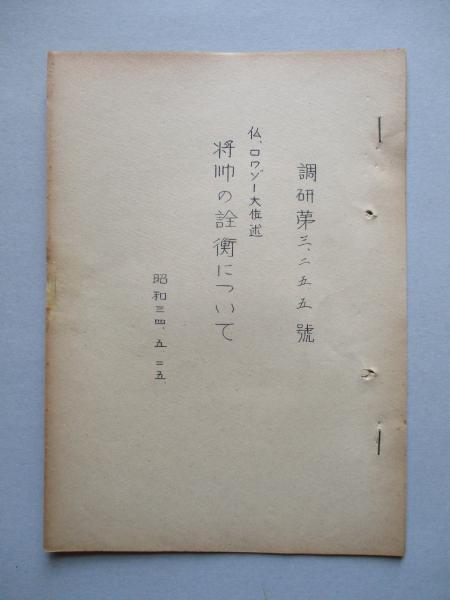 調研第三、二五五號
仏、ロワゾー大佐述
将帅の詮衡について
昭和三四、五、二五